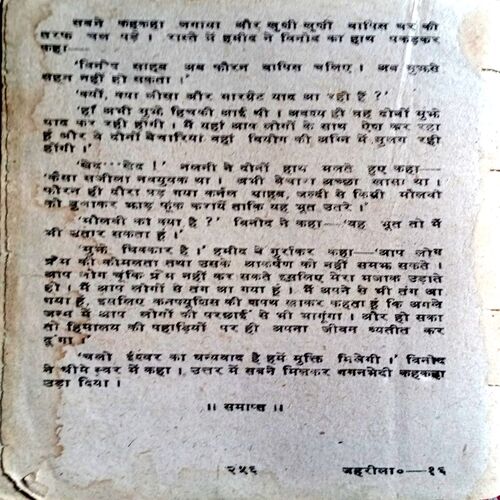 सबने कहकहा लगाया और खुशी खुशी वापिस घर की
तरफ चल पड़े । रास्ते में हमीद ने विनोद का हाथ पकड़कर
कहा—
'विनोद साहब अब फौरन वापिस चलिए । अब मुझसे
सहन नहीं हो सकता ।'
'क्यों, क्या लीसा और मारग्रेट याद आ रही हैं ?'
'हां अभी मुझे हिचकी आई थी । अवश्य ही वह दोनों मुझे
याद कर रही होंगी । मैं यहां आप लोगों के साथ ऐश कर रहा
हूं और वे दोनों बेचारियां वहां वियोग की अग्नि में सुलग रही
होंगी ।'
'खेद···खेद !' नलनी ने दोनों हाथ मलते हुए कहा—
'कैसा सजीला नवयुवक था । अभी बेचारा अच्छा खासा था ।
फौरन ही दौरा पड़ गया कर्नल साहब, जल्दी से किसी मौलवी
को बुलाकर झाड़ फूंक करायें ताकि यह भूत उतरे ।'
'मौलवी का क्या है ?' विनोद ने कहा—'यह भूत तो मैं
भी उतार सकता हूं ।'
'मुझे धिक्कार है ।' हमीद ने गुर्राकर कहा—'आप लोग
प्रेम की कोमलता तथा उसके आकर्षण को नहीं समझ सकते ।
आप लोग चूंकि प्रेम नहीं कर सकते इसलिए मेरा मजाक उड़ाते
हो । मैं आप लोगों से तंग आ गया हूं । मैं अपने से भी तंग आ
गया हूं, इसलिए कनफ्युशिस की शपथ खाकर कहता हूं कि अगले
जन्म में आप लोगों की परछाईं से भी भागूंगा । और हो सका
तो हिमालय की पहाड़ियों पर ही अपना जीवन व्यतीत कर
दूंगा ।'
'चलो ईश्वर का धन्यवाद है हमें मुक्ति मिलेगी ।' विनोद
ने धीमे स्वर में कहा । उत्तर में सबने मिलकर गगनभेदी कहकहा
उड़ा दिया ।
॥ समाप्त ॥
२५६
जहरीला०—१६